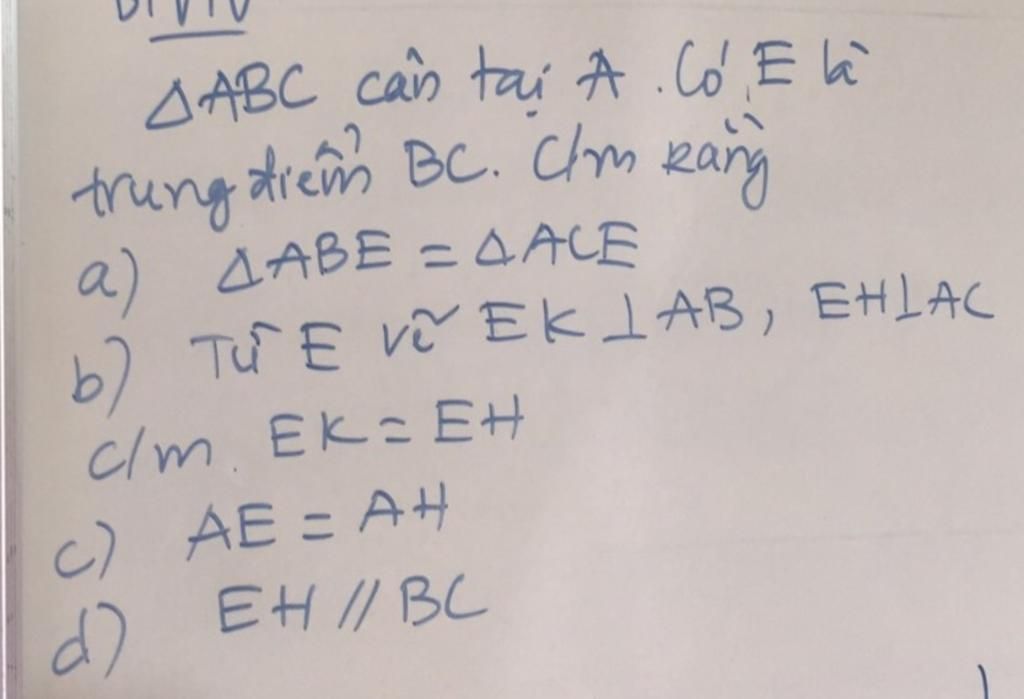 BTVN
ΔABC cân tại A. Có E là
trung điểm BC. C/m rằng
a) ΔABE = ΔACE
b) Từ E vẽ EK ⊥ AB, EH ⊥ AC
c/m. EK = EH
c) AE = AH
d) EH // BC